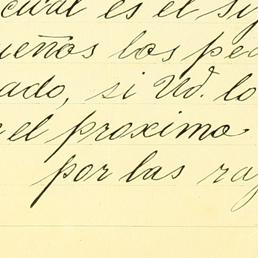 cual es el
ueños los pe
ado, si Ud. lo
el proximo
por las